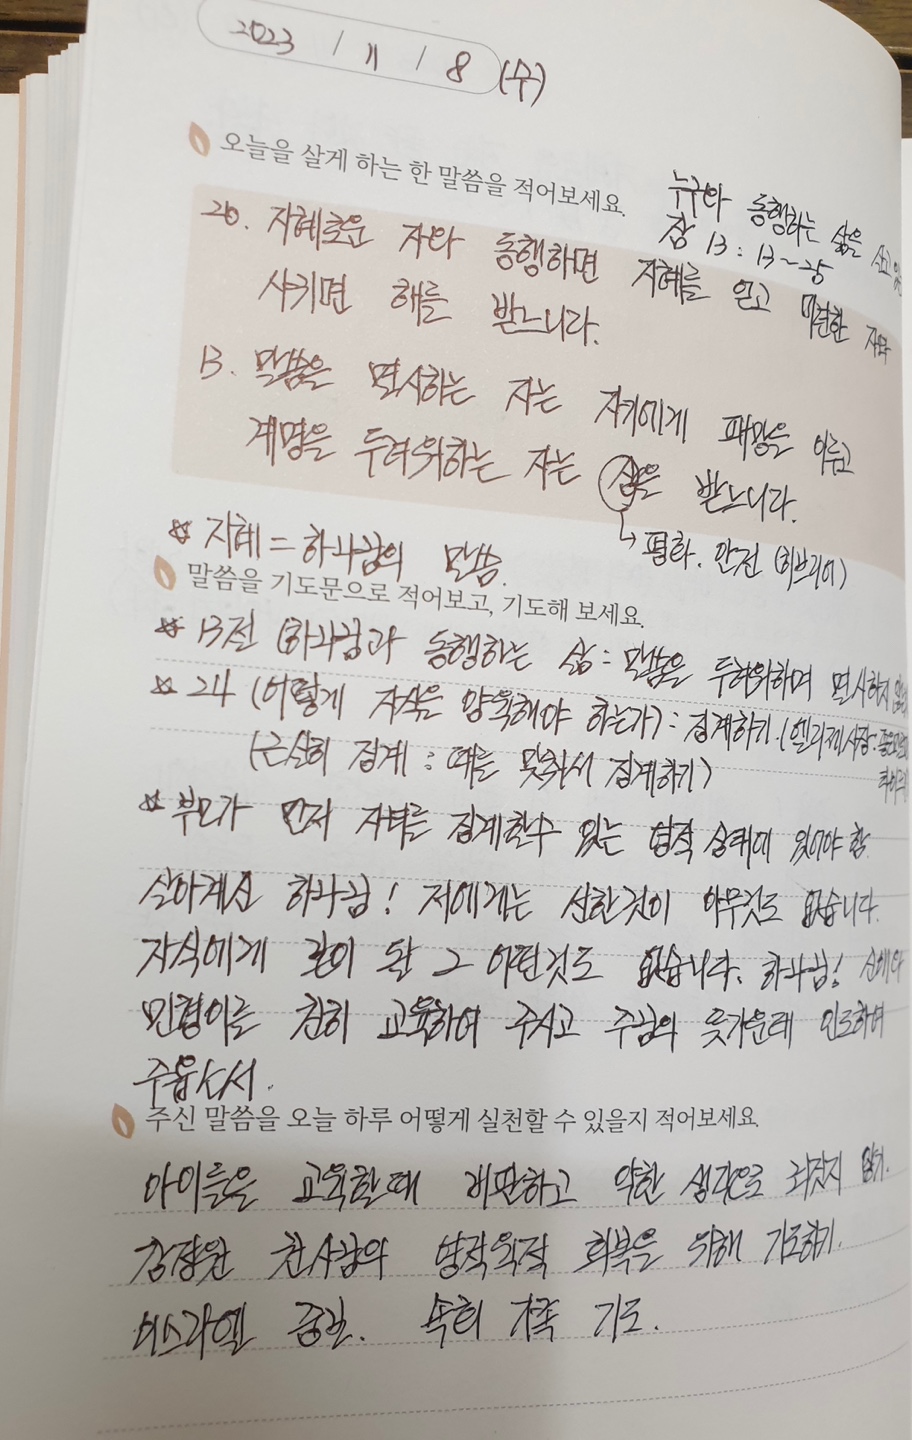 2023 / 11 / 8 (수)
오늘을 살게 하는 한 말씀을 적어보세요.
누구와 동행하는 삶을 살고
잠 13 : 13~25
20. 지혜로운 자와 동행하면 지혜를 얻고 미련한 자와
사귀면 해를 받느니라.
13. 말씀을 멸시하는 자는 자기에게 패망을 이루고
계명을 두려워하는 자는 상을 받느니라.
↳ 평화. 안전 (히브리어)
☆ 지혜 = 하나님의 말씀.
말씀을 기도문으로 적어보고, 기도해 보세요.
☆ 13절 (하나님과 동행하는 삶 : 말씀을 두려워하며 멸시하지
☆ 24 (어떻게 자식을 양육해야 하는가) : 징계하기. (엘리제사장:
(근실히 징계 : 때를 맞춰서 징계하기)
☆ 부모가 먼저 자녀를 징계할수 있는 영적 상태에 있어야 함.
살아계신 하나님! 저에게는 선한것이 아무것도 없습니다.
자식에게 본이 될 그 어떤것도 없습니다. 하나님!
민형이를 친히 교육하여 주시고 주님의 뜻가운데 인도하여
주옵소서.
주신 말씀을 오늘 하루 어떻게 실천할 수 있을지 적어보세요
아이들을 교육할때 비판하고 악한 생각으로 하지 않기.
집사님의 영적 육적 회복을 위해 기도하기.
이스라엘 속회 가족 기도.